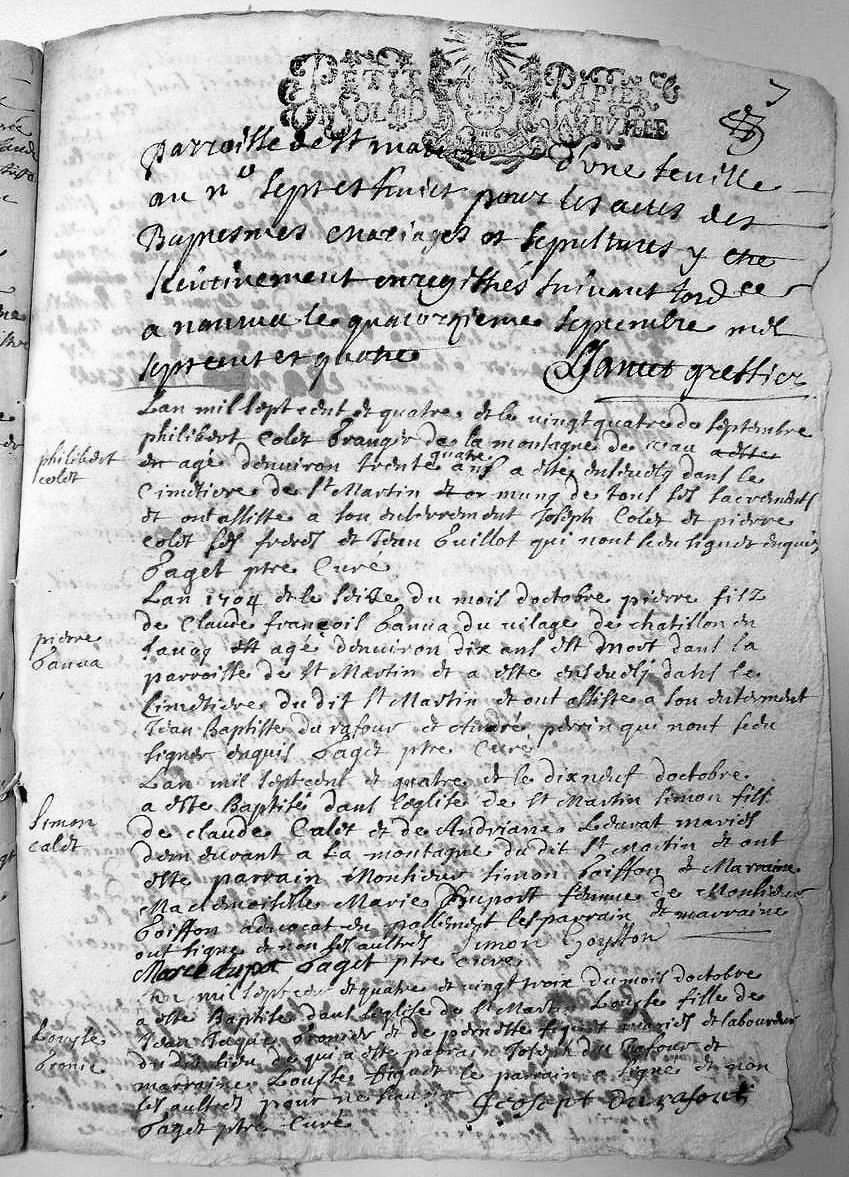 7
PETIT PAPIER
parroisse de St martin d'une feuille
au n° sept et huict pour les actes des
Baptesmes mariages et sepultures y etre
enregistrés suivant lord ce
a nantua le quatorzieme septembre mil
sept cent et quatre Janet greffier
Lan mil sept cent et quatre et le vingt quatre de septembre
philibert Colet de la montagne de
et agé denviron trente quatre ans a este ensevely dans le
Cimetiere de St Martin et or muny de tous ses sacrements
et ont assiste a son enterrement Joseph Colet et pierre
colet ses freres et Jean Guillot qui nont sceu signer enquis
paget ptre Curé
philibert
colet
Lan 1704 et le seize du mois doctobre pierre filz
de Claude françois du vilage de chatillon en
agé denviron dix ans est mort dans la
parroisse de St Martin et a este ensevely dans le
Cimetiere du dit St Martin et ont assiste a son enterment
Jean Baptiste du rafour et André perrin qui nont sceu
signer enquis paget ptre Curé
pierre
Lan mil sept cent et quatre et le dixneuf doctobre
a este Baptisé dans leglise de St Martin simon filz
de claude Calet et de Andriane mariés
demeurant a La montagne du dit St Martin et ont
este parrain Monsieur simon et Marraine
Mademoiselle Marie Duport femme de Monsieur
advocat en parlement les parrain et marraine
ont signe et non les aultres Simon
Marie duport paget ptre curé
Simon
calet
Lan mil sept cent et quatre et vingt troix du mois doctobre
a este Baptisé dans leglise de St Martin Louyse fille de
Jean et de pernette mariés et laboureur
du dit lieu de qui a este parrain Joseph du rafour et
marraine Louyse le parrain a signe et non
les aultres pour ne Joseph du rafour
paget ptre Curé
Louyse